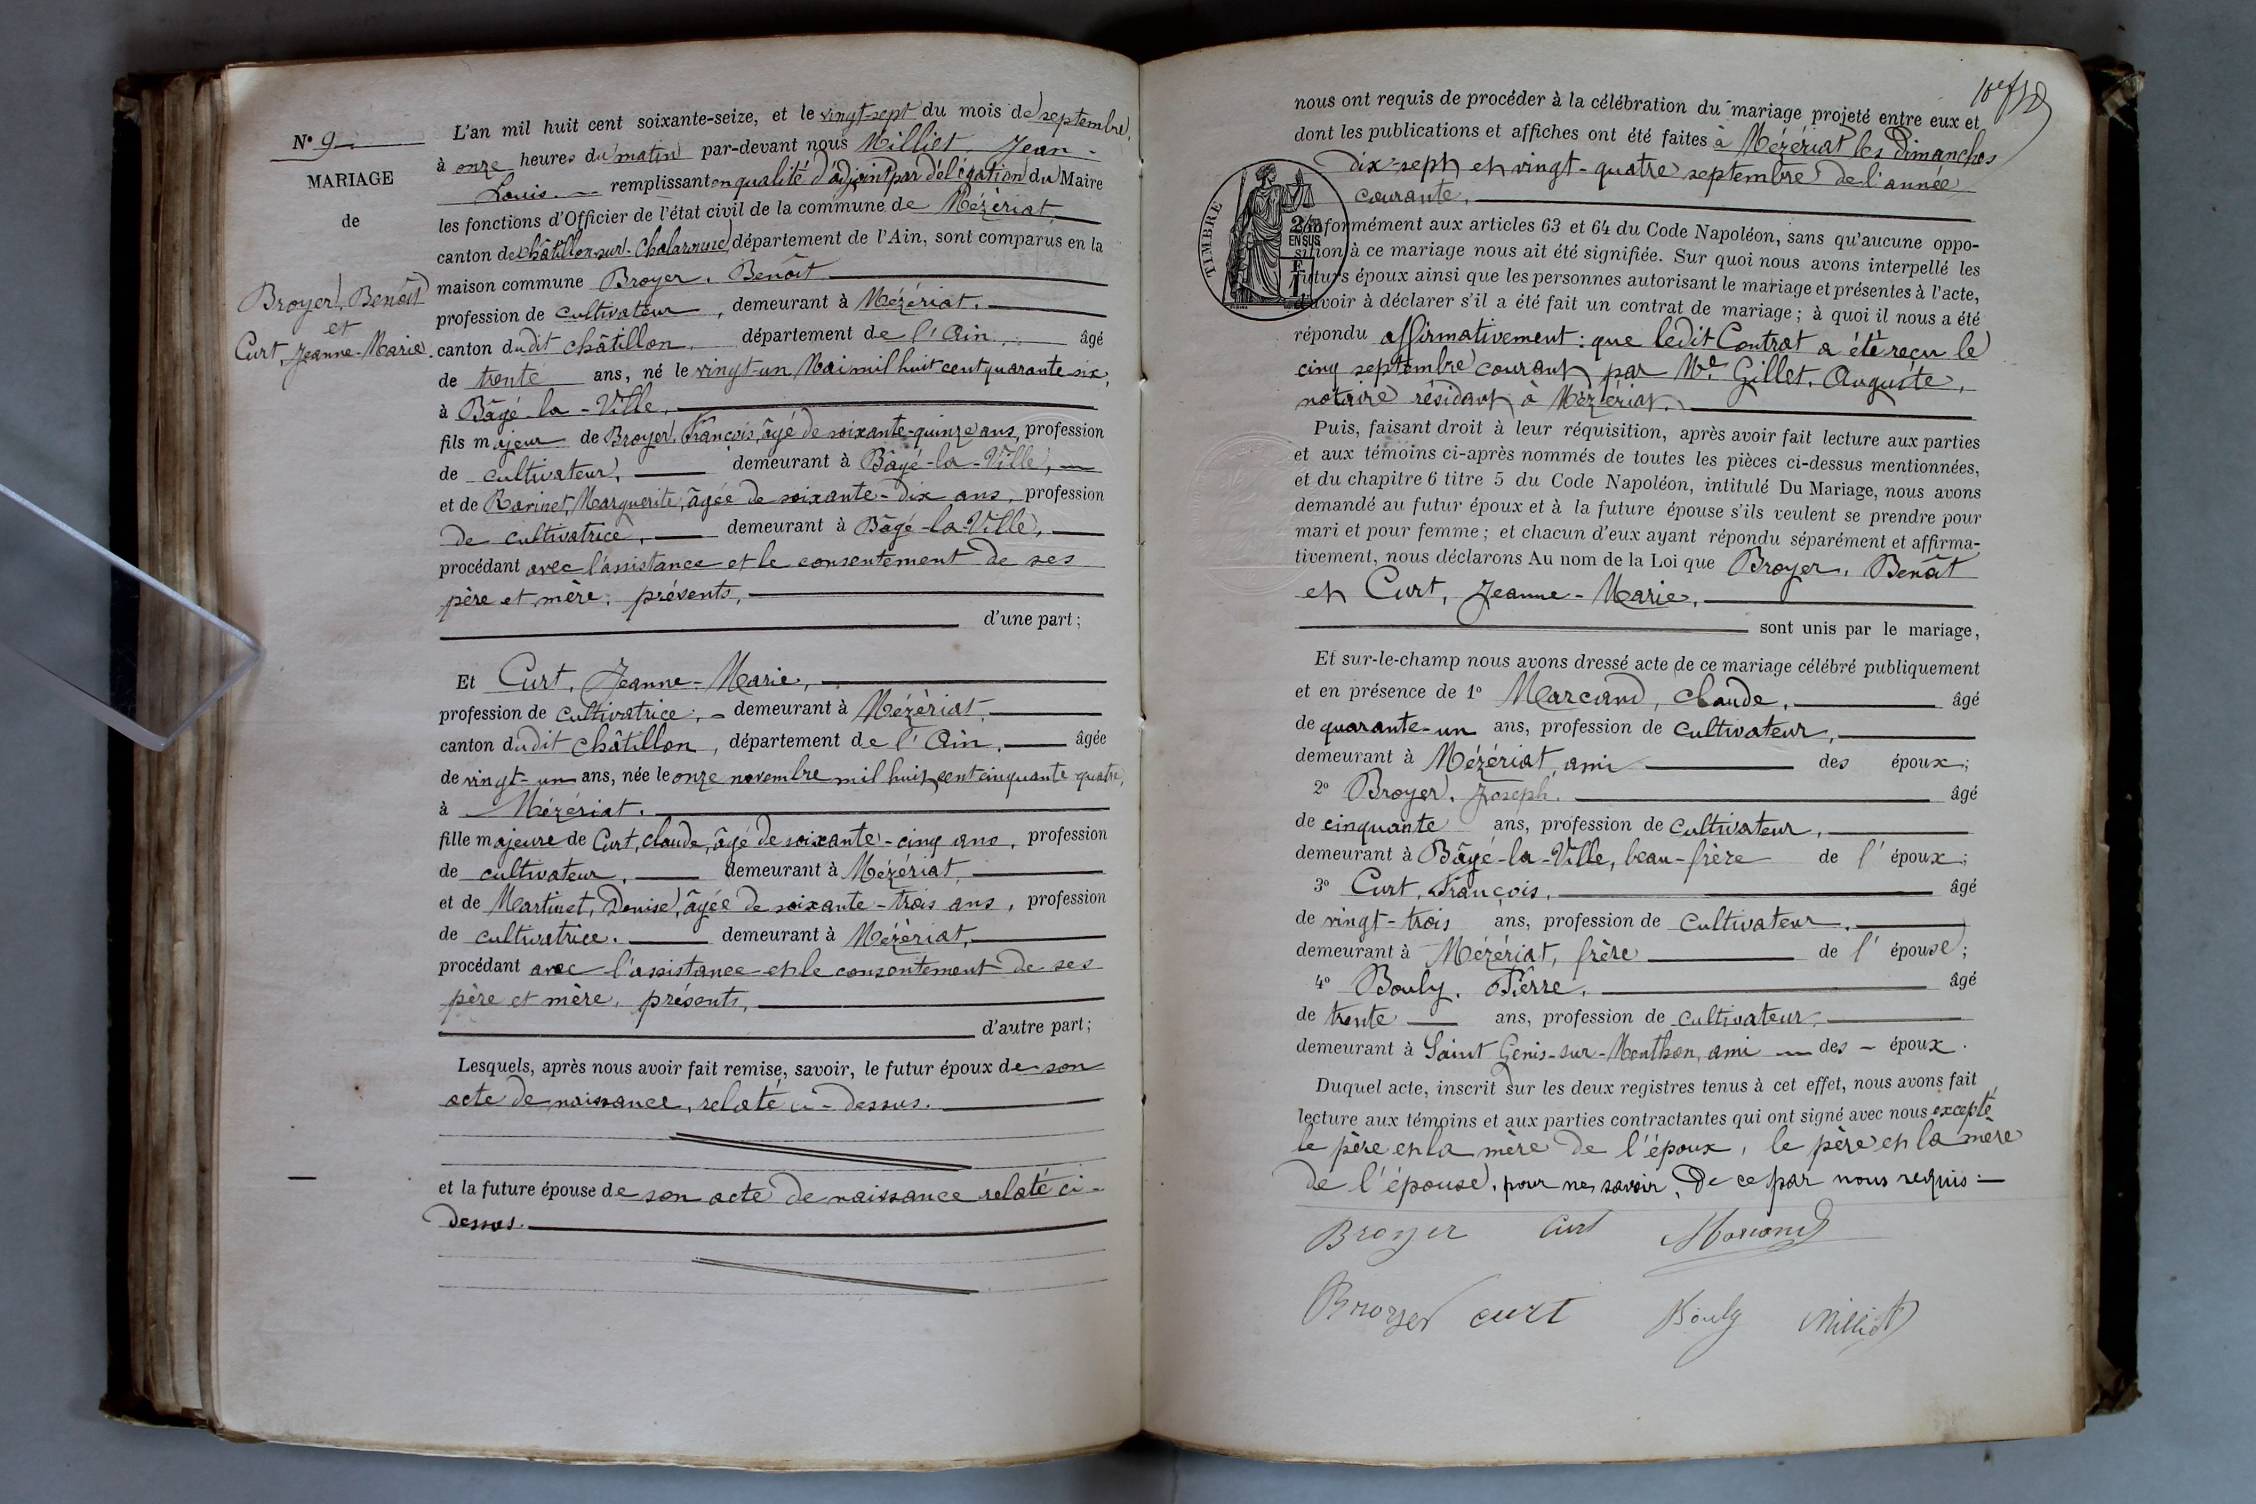 N° 9
MARIAGE
de
Broyer, Benoît
et
Curt, Jeanne-Marie.
L'an mil huit cent soixante-seize, et le vingt-sept du mois de septembre,
à onze heures du matin par-devant nous Milliet, Jean-
Louis. remplissant en qualité d'adjoint par délégation du Maire
les fonctions d'Officier de l'état civil de la commune de Mézériat,
canton de Châtillon-sur-Chalaronne, département de l'Ain, sont comparus en la
maison commune Broyer, Benoît
profession de cultivateur, demeurant à Mézériat,
canton dudit châtillon, département de l'Ain, âgé
de trente ans, né le vingt-un Mai mil huit cent quarante-six,
à Bâgé-la-Ville,
fils majeur de Broyer, François, âgé de soixante-quinze ans, profession
de cultivateur, demeurant à Bâgé-la-Ville,
et de Ravinet, Marguerite, âgée de soixante-dix ans, profession
de cultivatrice, demeurant à Bâgé-la-Ville,
procédant avec l'assistance et le consentement de ses
père et mère, présents,
d'une part;
Et Curt, Jeanne-Marie,
profession de cultivatrice, demeurant à Mézériat,
canton dudit châtillon, département de l'Ain, âgée
de vingt-un ans, née le onze novembre mil huit cent cinquante quatre,
à Mézériat.
fille majeure de Curt, claude, âgé de soixante-cinq ans, profession
de cultivateur, demeurant à Mézériat,
et de Martinet, Denise, âgée de soixante-trois ans, profession
de cultivatrice. demeurant à Mézériat,
procédant avec l'assistance et le consentement de ses
père et mère, présents,
d'autre part;
Lesquels, après nous avoir fait remise, savoir, le futur époux de son
acte de naissance, relaté ci-dessus.
et la future épouse de son acte de naissance relaté ci-
dessus.
nous ont requis de procéder à la célébration du mariage projeté entre eux et
dont les publications et affiches ont été faites à Mézériat les Dimanches
dix-sept et vingt-quatre septembre de l'année
courante,
TIMBRE
2/10
EN SUS
conformément aux articles 63 et 64 du Code Napoléon, sans qu'aucune oppo-
sition à ce mariage nous ait été signifiée. Sur quoi nous avons interpellé les
futurs époux ainsi que les personnes autorisant le mariage et présentes à l'acte,
d'avoir à déclarer s'il a été fait un contrat de mariage; à quoi il nous a été
répondu affirmativement: que ledit Contrat a été reçu le
cinq septembre courant par Me Gillet, Auguste,
notaire résidant à Mézériat.
Puis, faisant droit à leur réquisition, après avoir fait lecture aux parties
et aux témoins ci-après nommés de toutes les pièces ci-dessus mentionnées,
et du chapitre 6 titre 5 du Code Napoléon, intitulé Du Mariage, nous avons
demandé au futur époux et à la future épouse s'ils veulent se prendre pour
mari et pour femme; et chacun d'eux ayant répondu séparément et affirma-
tivement, nous déclarons Au nom de la Loi que Broyer, Benoît
et Curt, Jeanne-Marie,
sont unis par le mariage,
Et sur-le-champ nous avons dressé acte de ce mariage célébré publiquement
et en présence de 1° Marcand, claude, âgé
de quarante-un ans, profession de cultivateur,
demeurant à Mézériat, ami des époux;
2° Broyer, Joseph, âgé
de cinquante ans, profession de cultivateur,
demeurant à Bâgé-la-Ville, beau-frère de l'époux;
3° Curt, François, âgé
de vingt-trois ans, profession de cultivateur,
demeurant à Mézériat, frère de l'épouse;
4° Bouly, Pierre, âgé
de trente ans, profession de cultivateur,
demeurant à Saint Genis-sur-Menthon, ami des époux.
Duquel acte, inscrit sur les deux registres tenus à cet effet, nous avons fait
lecture aux témoins et aux parties contractantes qui ont signé avec nous excepté
le père et la mère de l'époux, le père et la mère
de l'épouse, pour ne savoir, de ce par nous requis:
Broyer Curt Marcand
Broyer curt Bouly Milliet